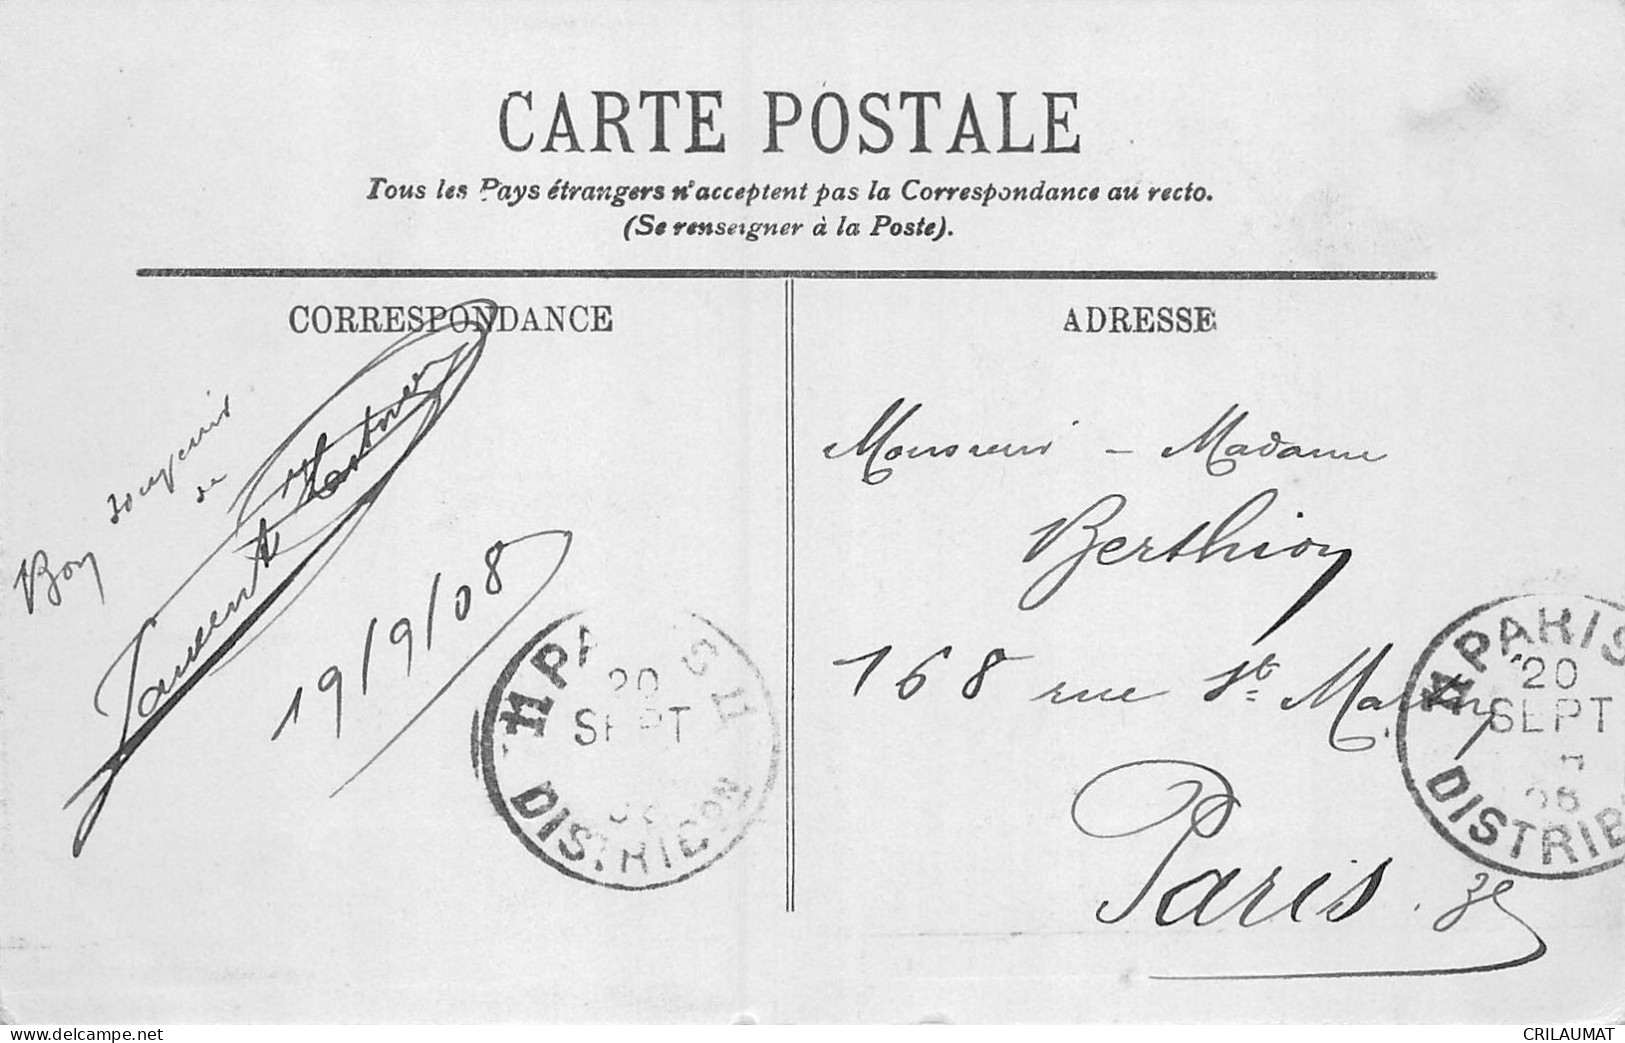 CARTE POSTALE
Tous les Pays étrangers n'acceptent pas la Correspondance au recto.
(Se renseigner à la Poste).
CORRESPONDANCE
Bon souvenir
de
Laurent
19/9/08
PARIS 11
20
SEPT
DISTRIBON
ADRESSE
Monsieur - Madame
Berthion
168 rue St. Martin
Paris. 3e
11 PARIS
20
SEPT
08
DISTRIB
www.delcampe.net
CRILAUMAT